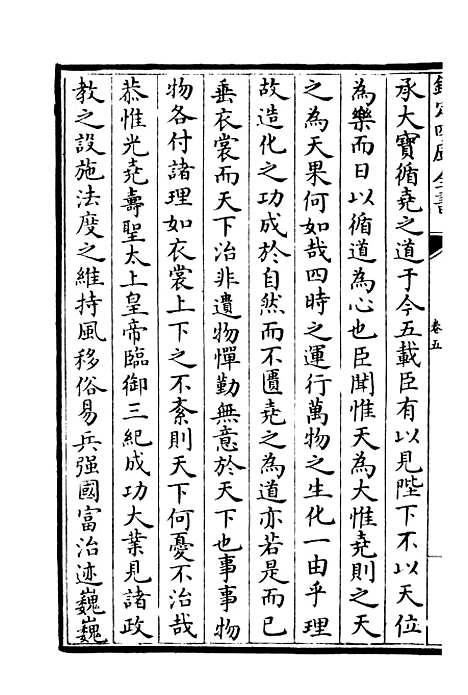 欽定四庫全書
卷五
承大寶循堯之道于今五載臣有以見陛下不以天位
為樂而日以循道為心也臣聞惟天為大惟堯則之天
之為天果何如哉四時之運行萬物之生化一由乎理
故造化之功成於自然而不匱堯之為道亦若是而已
垂衣裳而天下治非遺物憚勤無意於天下也事事物
物各付諸理如衣裳上下之不紊則天下何憂不治哉
恭惟光堯壽聖太上皇帝臨御三紀成功大業見諸政
教之設施法度之維持風移俗易兵强國富治迹巍巍